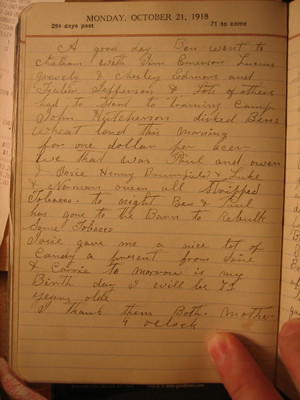 MONDAY, OCTOBER 21, 1918
294 days past 71 to come
A good day Ben went to
Chatham with Tom Emerson Lucius
Gravely & Chesley Edmons and
Stafferson & Lots of others
had to Went to Training Camp
John Hutcherson disked Bens
Wheat land this Morning
for one dollar per acer
we that was Paul and owen
& Josie Henny & Luke
& Norman owen all Stripped
Tobacco. to night Ben & Paul
has gone to the Barn to Rebulk
Some Tobacco
Josie gave me a nice lot of
Candy a present from Josie
& Connie to Morrow is my
Birth day I will be 73
years olde
I thank them Both. Mother
9 oclock